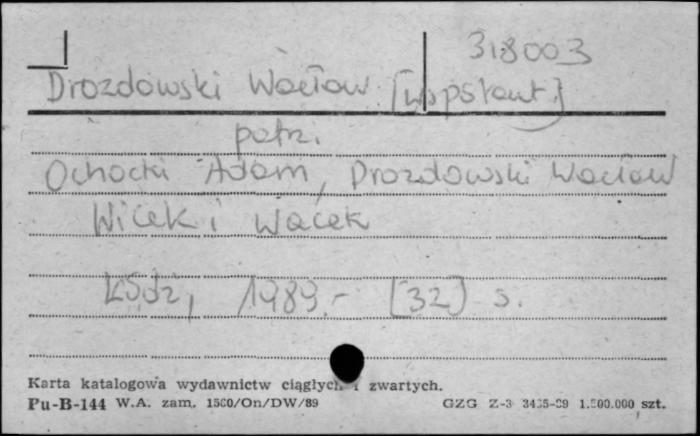 318003
Drozdowski Wacław [współaut.]
patrz.
Ochocki Adam, Drozdowski Wacław
Wicek i Wacek
Łódź, 1989.- [32] s.
Karta katalogowa wydawnictw ciągłych i zwartych.
Pu-B-144 W.A. zam. 1500/On/DW/89 GZG Z-3 1.500.000 szt.